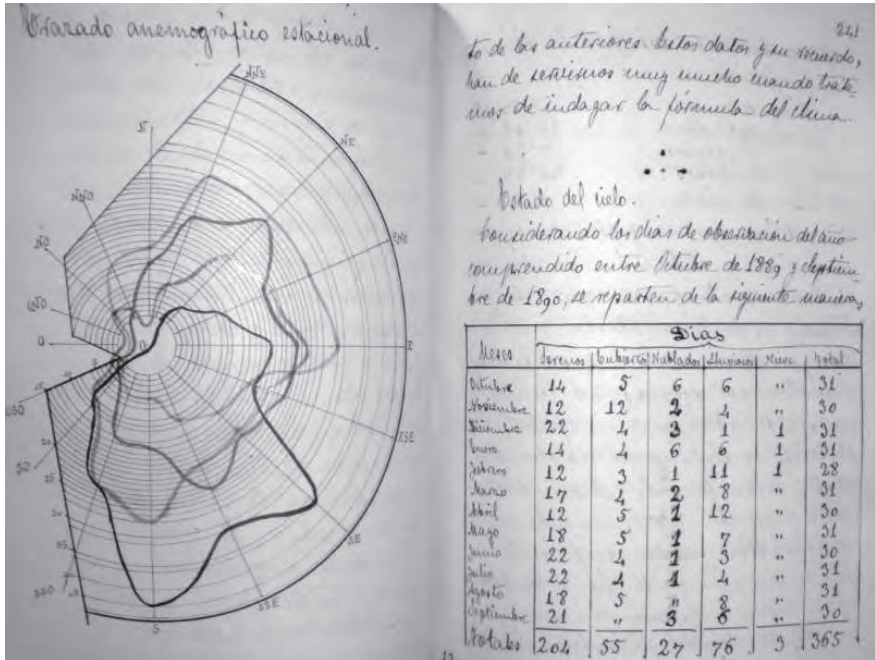 Trazado anemográfico estacional.
NNE
N
NE
NNO
NO
ENE
ONO
O
E
OSO
ESE
SO
SE
SSO
SSE
S
241
to de las anteriores. Estos datos y su recuerdo,
han de servirnos muy mucho cuando trate-
mos de indagar la fórmula del clima.
Estado del cielo.
Considerando los días de observación del año
comprendido entre Octubre de 1889 y Septiem-
bre de 1890, se reparten de la siguiente manera,
Días
Meses Serenos Cubiertos Nublados Lluviosos Nieve Total
Octubre 14 5 6 6 " 31
Noviembre 12 12 2 4 " 30
Diciembre 22 4 3 1 1 31
Enero 14 4 6 6 1 31
Febrero 12 3 1 11 1 28
Marzo 17 4 2 8 " 31
Abril 12 5 1 12 " 30
Mayo 18 5 1 7 " 31
Junio 22 4 1 3 " 30
Julio 22 4 1 4 " 31
Agosto 18 5 " 8 " 31
Septiembre 21 " 3 6 " 30
Totales 204 55 27 76 3 365